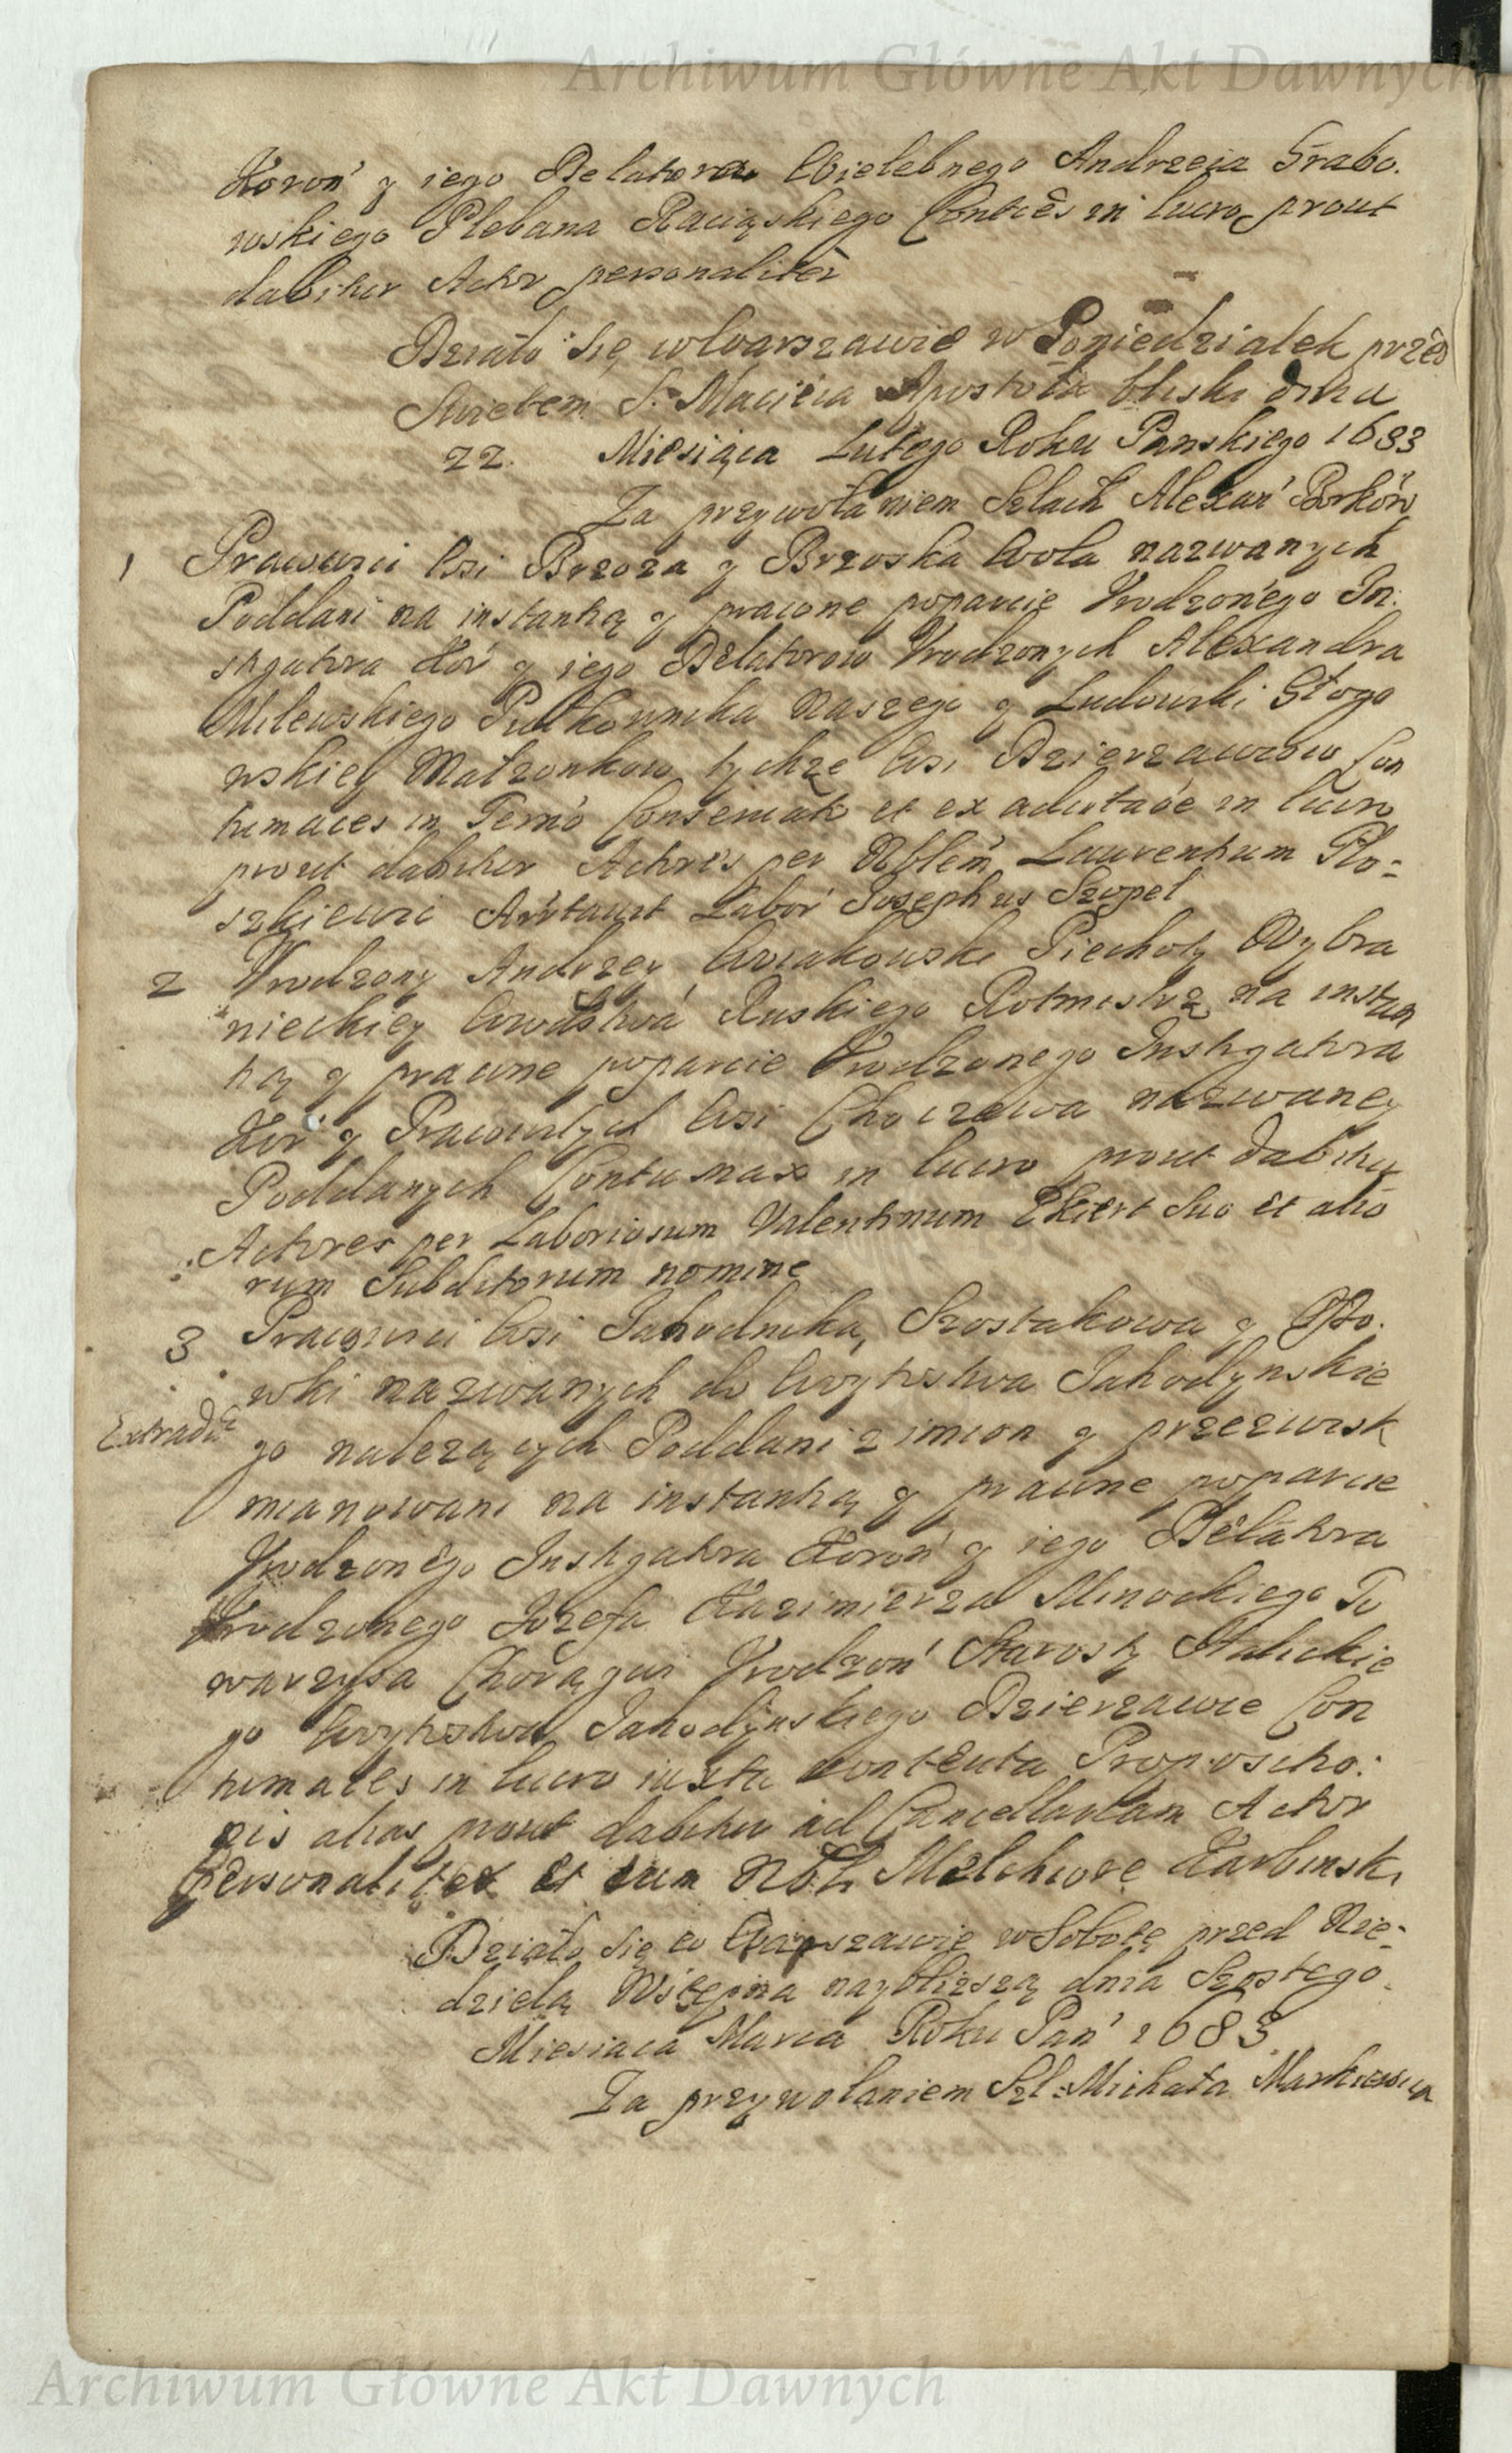 Archiwum Główne Akt Dawnych
Koroń y iego Delatora Wielebnego Andrzeia Grabo.
wskiego Plebana Raciąskiego Conttes in lucro prout
dabitur Actor personaliter
Działo Się w Warszawie w Poniedziałek przed
Swietem S. Macieia Apostoła bliski dnia
22. Miesiąca Lutego Roku Panskiego 1683
Za przywołaniem Szlach Alexań
1 Pracowici Wsi Brzoza y Brzoska Wola nazwanych
Poddani na instantią y prawne poparcie Vrodzonego In:
stygatora Kor y iego Delatorow Vrodzonych Alexandra
Milewskiego Pułkownika Naszego y Ludowiki Głogo
wskiey Małzonkow tychze Wsi Dzierzawcow Con
tumaces in Termo Conservato et ex in lucro
prout dabitur Actores per Nblem Laurentium Plo=
szkiewic Labor Josephus Szopel
2 Vrodzony Andrzey Piechoty Wybra
nieckiey Wwdstwa Ruskiego Rotmistrz na instan
tią y prawne poparcie Vrodzonego Instygatora
Kor y Pracowitych Wsi Choczewa nazwaney
Poddanych Contumax in lucro prout dabitur
Actores per Laboriosum Valentinum Ekiert Suo et alio
rum Subditorum nomine
3 Pracowici Wsi Jahodnika, Szostakowa y
wki nazwanych do Woytostwa Jahodynskie
Extradit
go nalezących Poddani z imion y przezwisk
mianowani na instantią y prawne poparcie
Vrodzonego Instygatora Koroń y iego Delatora
Vrodzonego Jozefa Kazimierza Minockiego To
warzysza Chorągwi Vrodzoń Starosty Halickie
go Woytostwa Jahodynskiego Dzierzawce Con
tumaces in lucro iuxta contenta Propositio:
nis alias prout dabitur ad Cancellariam Actor
Personaliter et cum Nbli Melchiore Karlinski
Działo się w Warszawie w Sobotę przed Nie=
dzielą Wstępną nayblizszą dnia Szostego
Miesiaca Marca Roku Pań 1683
Za przywołaniem Szl: Michała Markiewica
Archiwum Główne Akt Dawnych